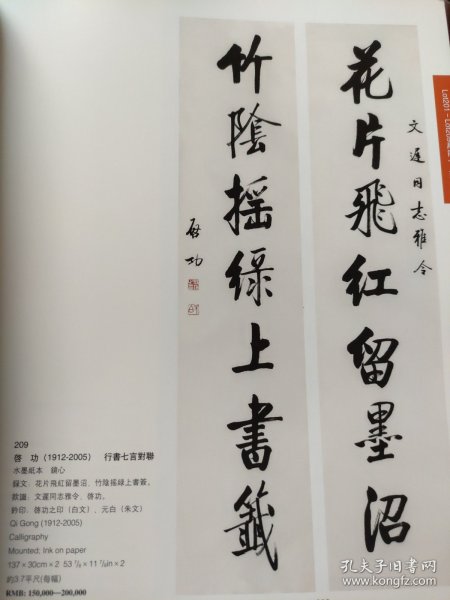 花片飛紅留墨沼
文遲同志雅令
竹陰摇緑上書籤
啟功
209
啓 功 (1912-2005) 行書七言對聯
水墨紙本 鏡心
録文：花片飛紅留墨沼，竹陰摇緑上書簽。
款識：文遲同志雅令，啓功。
鈐印：啓功之印（白文）、元白（朱文）
Qi Gong (1912-2005)
Calligraphy
Mounted; Ink on paper
137×30cm×2 53 7/8×11 7/8in×2
約3.7平尺(每幅)
RMB: 150,000—200,000
孔夫子旧书网